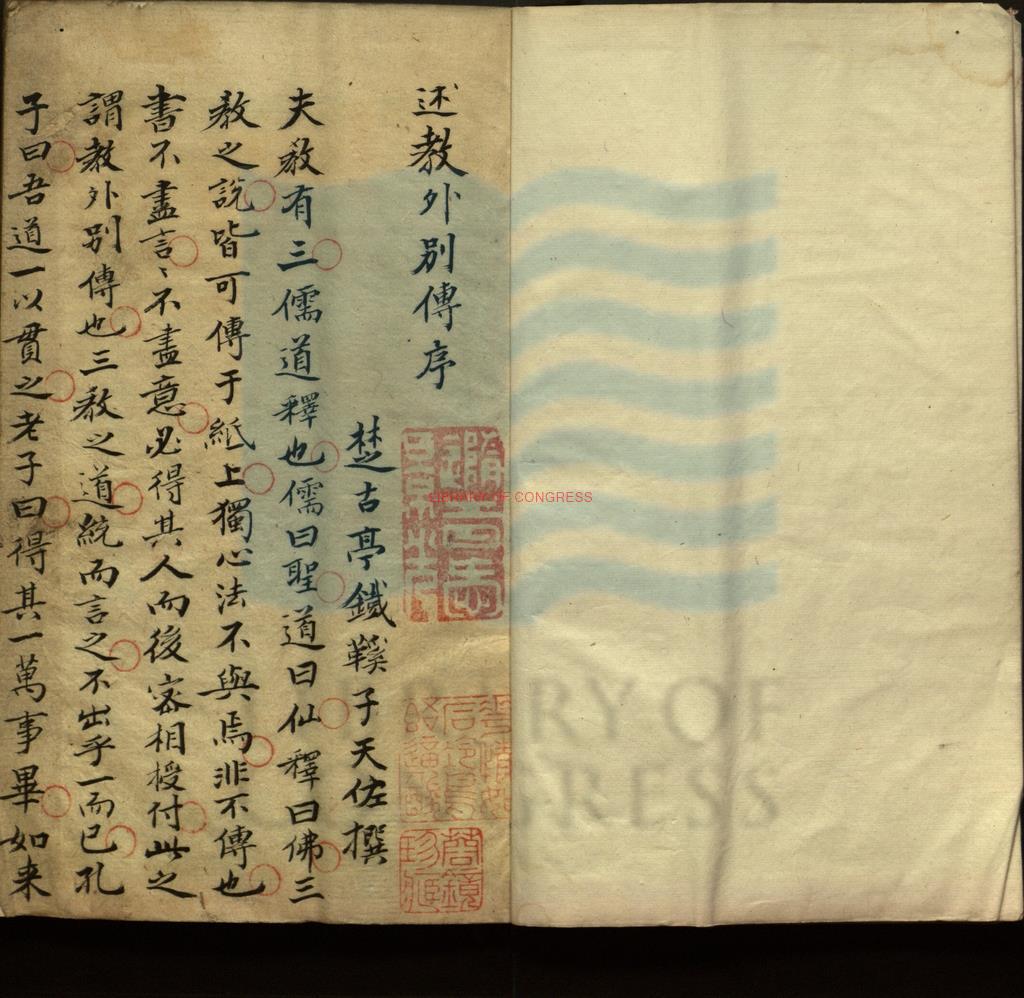 述教外別傳序
楚古亭鐵鞵子天佐撰
夫教有三儒道釋也儒曰聖道曰仙釋曰佛三
教之說皆可傳于紙上獨心法不與焉非不傳也
書不盡言〻不盡意必得其人而後密相授付此之
謂教外別傳也三教之道統而言之不出乎一而已孔
子曰吾道一以貫之老子曰得其一萬事畢如来
LIBRARY OF CONGRESS
RY OF
GRESS